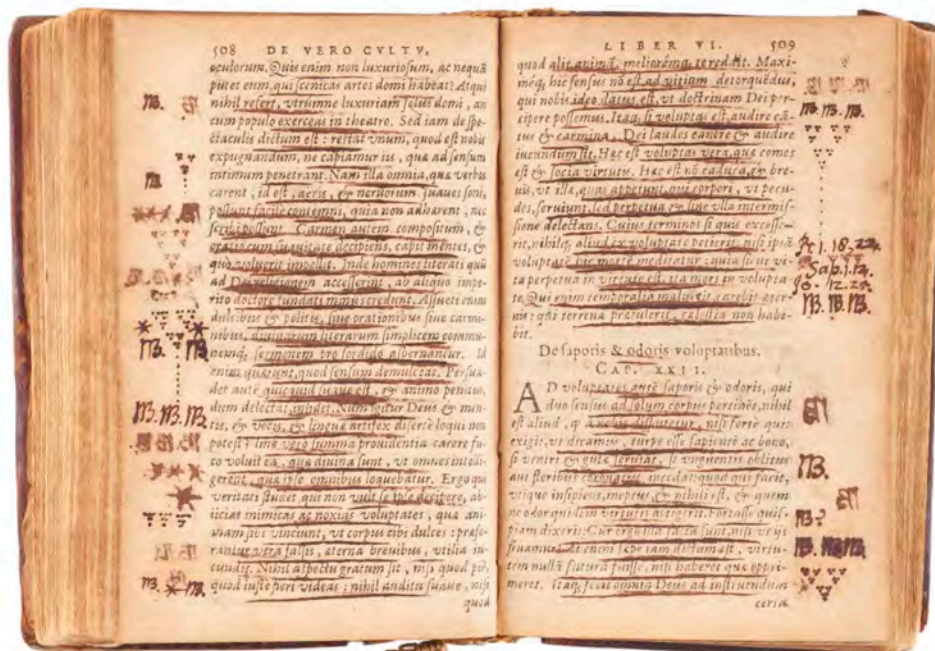 508 DE VERO CVLTV,
oculorum. Quis enim non luxuriosum, ac nequã
putet eum, qui scenicas artes domi habeat? Atqui
nihil refert, vtrumne luxuriam solus domi, an
cum populo exerceas in theatro. Sed iam de spe-
ctaculis dictum est: restat vnum, quod est nobis
expugnandum, ne capiamur iis, quæ ad sensum
intimum penetrant. Nam illa omnia, quæ verbis
carent, id est, aeris, & neruorum suaues soni,
possunt facile contemni, quia non adhærent, nec
scribi possunt. Carmen autem compositum, &
oratio cum suauitate decipiens, capit mentes, &
quo voluerit impellit. Inde homines literati quũ
ad Dei religionem accesserint, ab aliquo impe-
rito doctore fundati minus credunt. Assueti enim
dulcibus & politis, siue orationibus siue carmi-
nibus, diuinarum literarum simplicem commu-
nemq; sermonem pro sordido aspernantur. Id
enim quærunt, quod sensum demulceat. Persua-
det autẽ quicquid suaue est, & animo penitus,
dum delectat, insidet. Num igitur Deus & men-
tis, & vocis, & linguæ artifex disertè loqui non
potest? Imo vero summa prouidentia carere fu-
co voluit ea, quæ diuina sunt, vt omnes intelli-
gerent, quæ ipse omnibus loquebatur. Ergo qui
veritati studet, qui non vult se ipse decipere, ab-
iiciat inimicas ac noxias voluptates, quæ ani-
mam sibi vinciunt, vt corpus cibi dulces: præfe-
rantur vera falsis, æterna breuibus, vtilia iu-
cundis. Nihil aspectu gratum sit, nisi quod piè,
quod iuste fieri videas: nihil auditu suaue, nisi
quod
LIBER VI. 509
quod alit animã, meliorémq; te reddit. Maxi-
méq; hic sensus nõ est ad vitium detorquẽdus,
qui nobis ideo datus est, vt doctrinam Dei per-
cipere possemus. Itaq; si voluptas est, audire cã-
tus & carmina, Dei laudes canere & audire
iucundum sit. Hæc est voluptas vera, quæ comes
est & socia virtutis. Hæc est nõ caduca, & bre-
uis, vt illæ, quas appetunt, qui corpori, vt pecu-
des, seruiunt, sed perpetua & sine vlla intermis-
sione delectans. Cuius terminos si quis excesse-
rit, nihilq; aliud ex voluptate petierit, nisi ipsã
voluptatẽ, hic mortẽ meditatur: quia sicut vi-
ta perpetua in virtute est, ita mors in volupta-
te. Qui enim temporalia maluerit, carebit æter-
nis: qui terrena prætulerit, cælestia non habe-
bit.
De saporis & odoris voluptatibus.
CAP. XXII.
AD voluptates autẽ saporis & odoris, qui
duo sensus ad solum corpus pertinẽt, nihil
est aliud, q à nobis disputetur, nisi forte quis
exigit, vt dicamus, turpe esse sapienti ac bono,
si ventri & gulæ seruiat, si vnguentis oblitus
aut floribus coronatus incedat: quod qui facit,
vtique insipiens, ineptus, & nihili est, & quem
ne odor quidem virtutis attigerit. Fortasse quis-
piam dixerit: Cur ergo ista facta sunt, nisi vt ijs
fruamur? At enim sæpe iam dictum est, virtu-
tem nullã futurã fuisse, nisi haberet quæ oppri-
meret. Itaq; fecit omnia Deus ad instruendum
certa